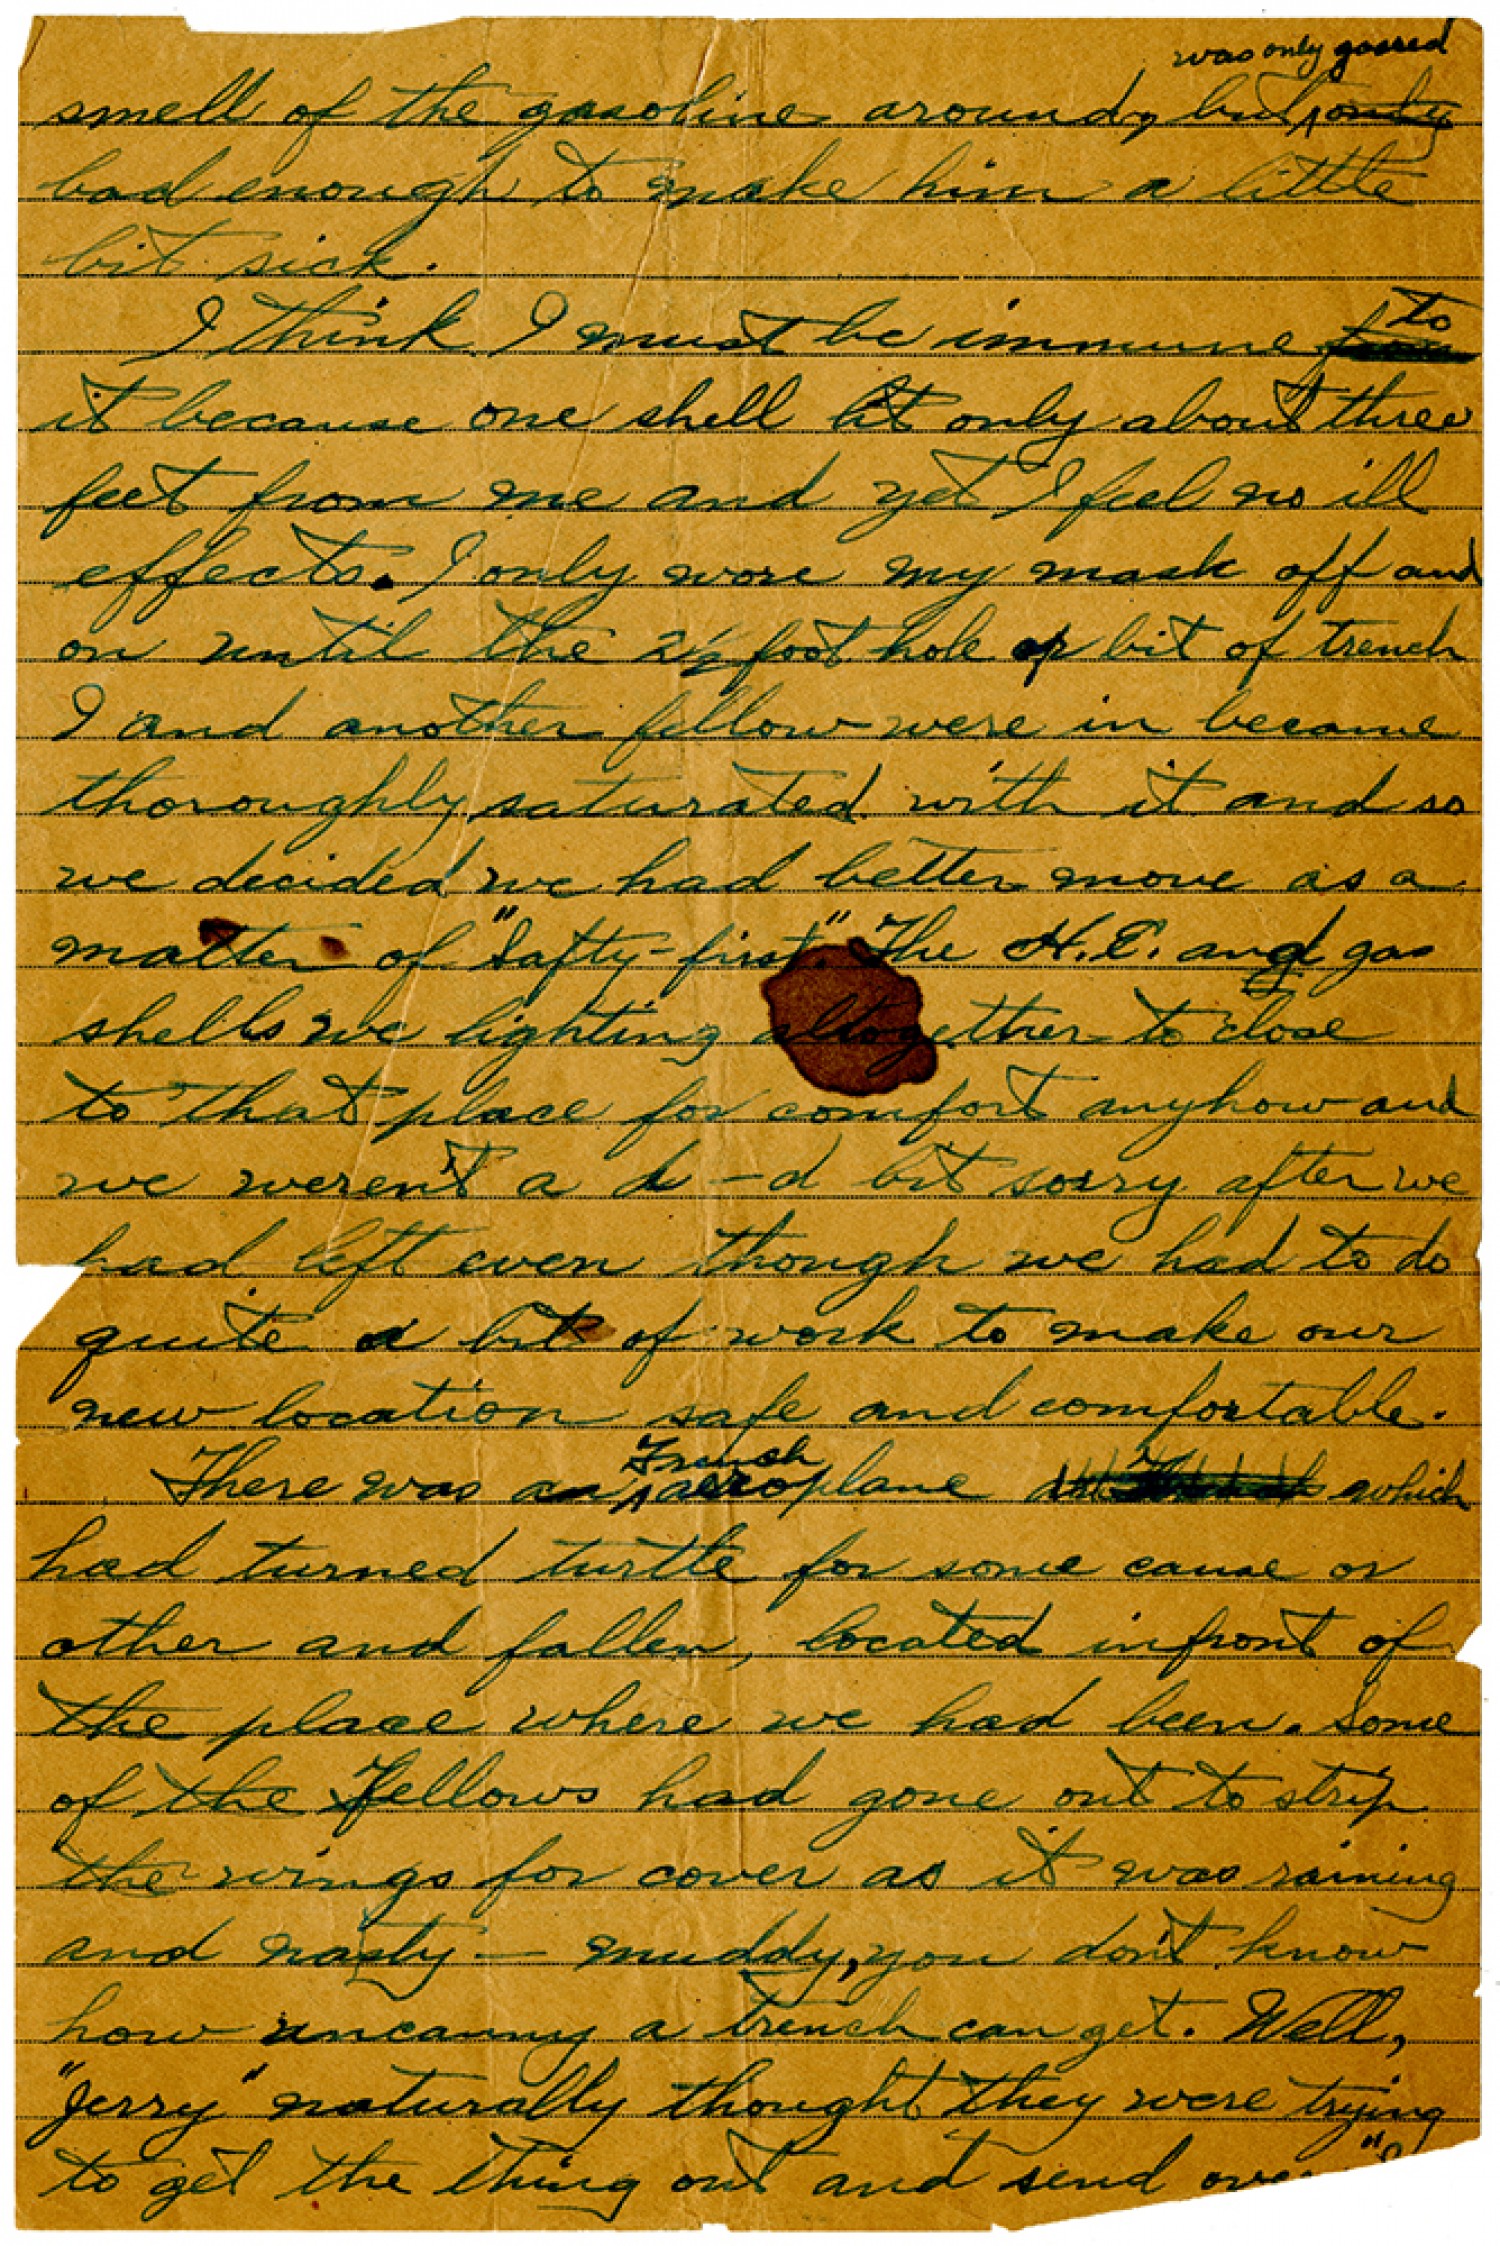 was only gassed
smell of the gasoline around, but only
bad enough to make him a little
bit sick.
to
I think I must be immune from
it because one shell lit only about three
feet from me and yet I feel no ill
effects. I only wore my mask off and
on until the 2½ foot hole or bit of trench
I and another fellow were in became
thoroughly saturated with it and so
we decided we had better move as a
matter of "safty-first." The H.E. and gas
shells we lighting altogether to close
to that place for comfort anyhow and
we weren't a d—d bit sorry after we
had left even though we had to do
quite a bit of work to make our
new location safe and comfortable.
French
There was an aeroplane which
had turned turtle for some cause or
other and fallen, located infront of
the place where we had been. Some
of the Fellows had gone out to strip
the wings for cover as it was raining
and nasty — muddy, you don't know
how uncanny a trench can get. Well,
"Jerry" naturally thought they were trying
to get the thing out and send